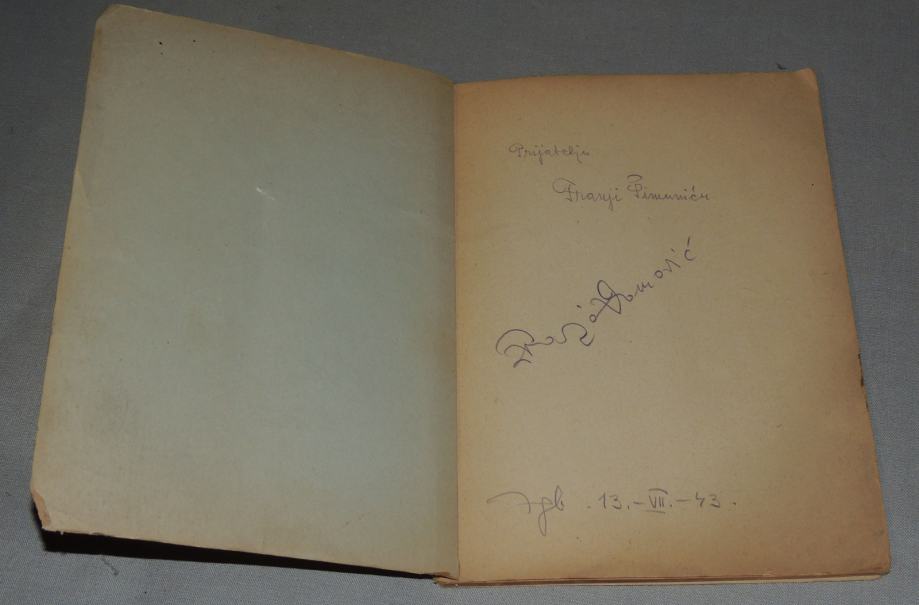 Prijatelju
Franji Šimuniću
Zgb. 13.-VII.-43.